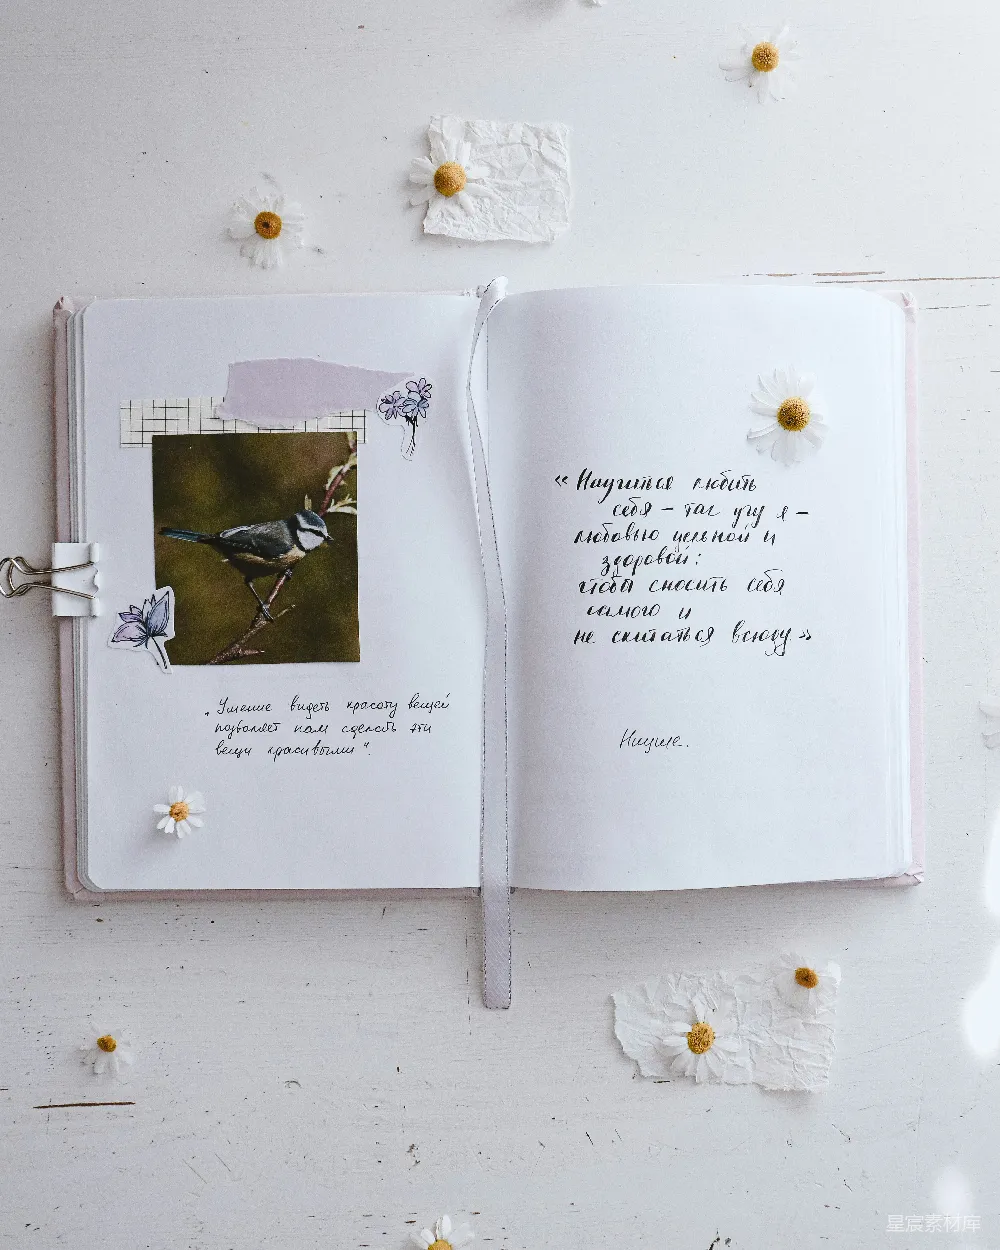 „Умение видеть красоту вещей
позволяет нам сделать эти
вещи красивыми“.
«Научиться любить
себя – так учу я –
любовью цельной и
здоровой:
чтобы сносить себя
самого и
не скитаться всюду»
Ницше.
星宸素材库